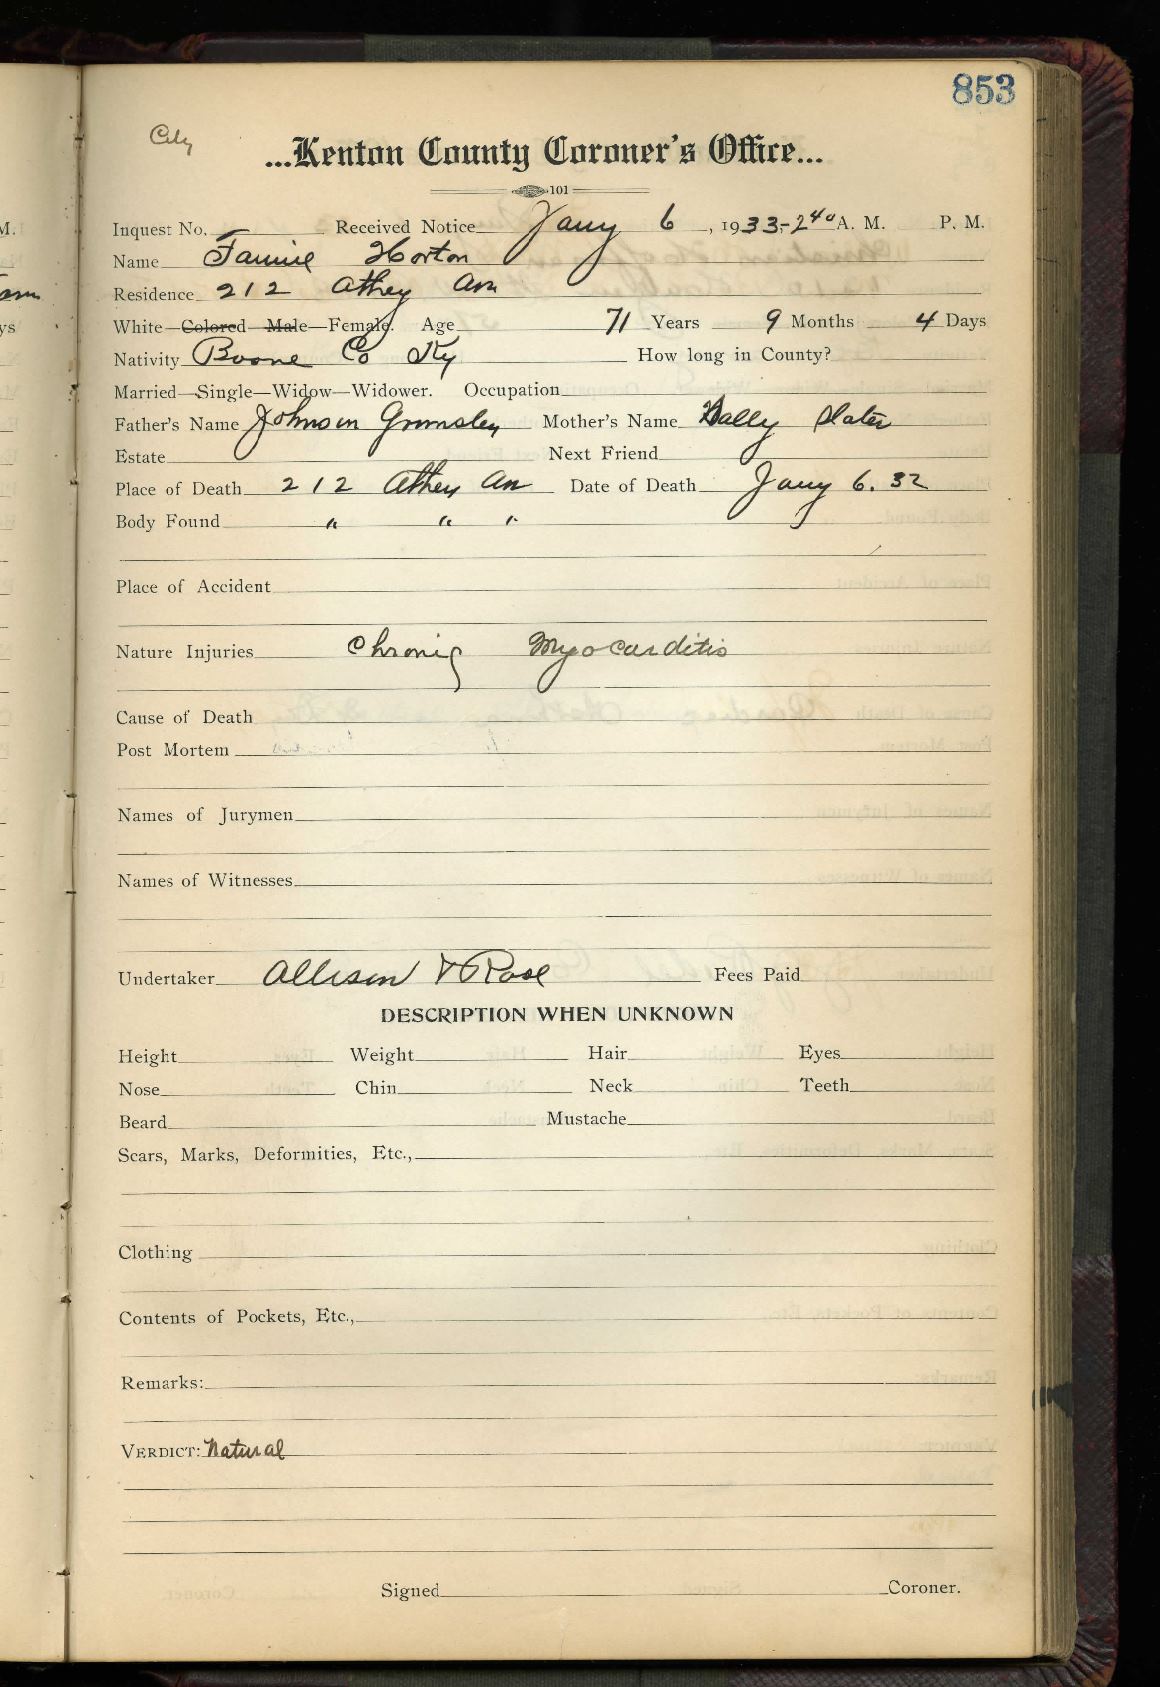 853
City
...Kenton County Coroner's Office...
101
Inquest No. Received Notice Jany 6, 1933-2 40 A. M. P. M.
Name Fannie Horton
Residence 212 Athey Ave
White—Colored—Male—Female. Age 71 Years 9 Months 4 Days
Nativity Boone Co Ky How long in County?
Married—Single—Widow—Widower. Occupation
Father's Name Johnson Grimsley Mother's Name Sally Slater
Estate Next Friend
Place of Death 212 Athey Av Date of Death Jany 6. 32
Body Found " " "
Place of Accident
Nature Injuries Chronic Myocarditis
Cause of Death
Post Mortem
Names of Jurymen
Names of Witnesses
Undertaker Allison & Rose Fees Paid
DESCRIPTION WHEN UNKNOWN
Height Weight Hair Eyes
Nose Chin Neck Teeth
Beard Mustache
Scars, Marks, Deformities, Etc.,
Clothing
Contents of Pockets, Etc.,
Remarks:
VERDICT: Natural
Signed Coroner.